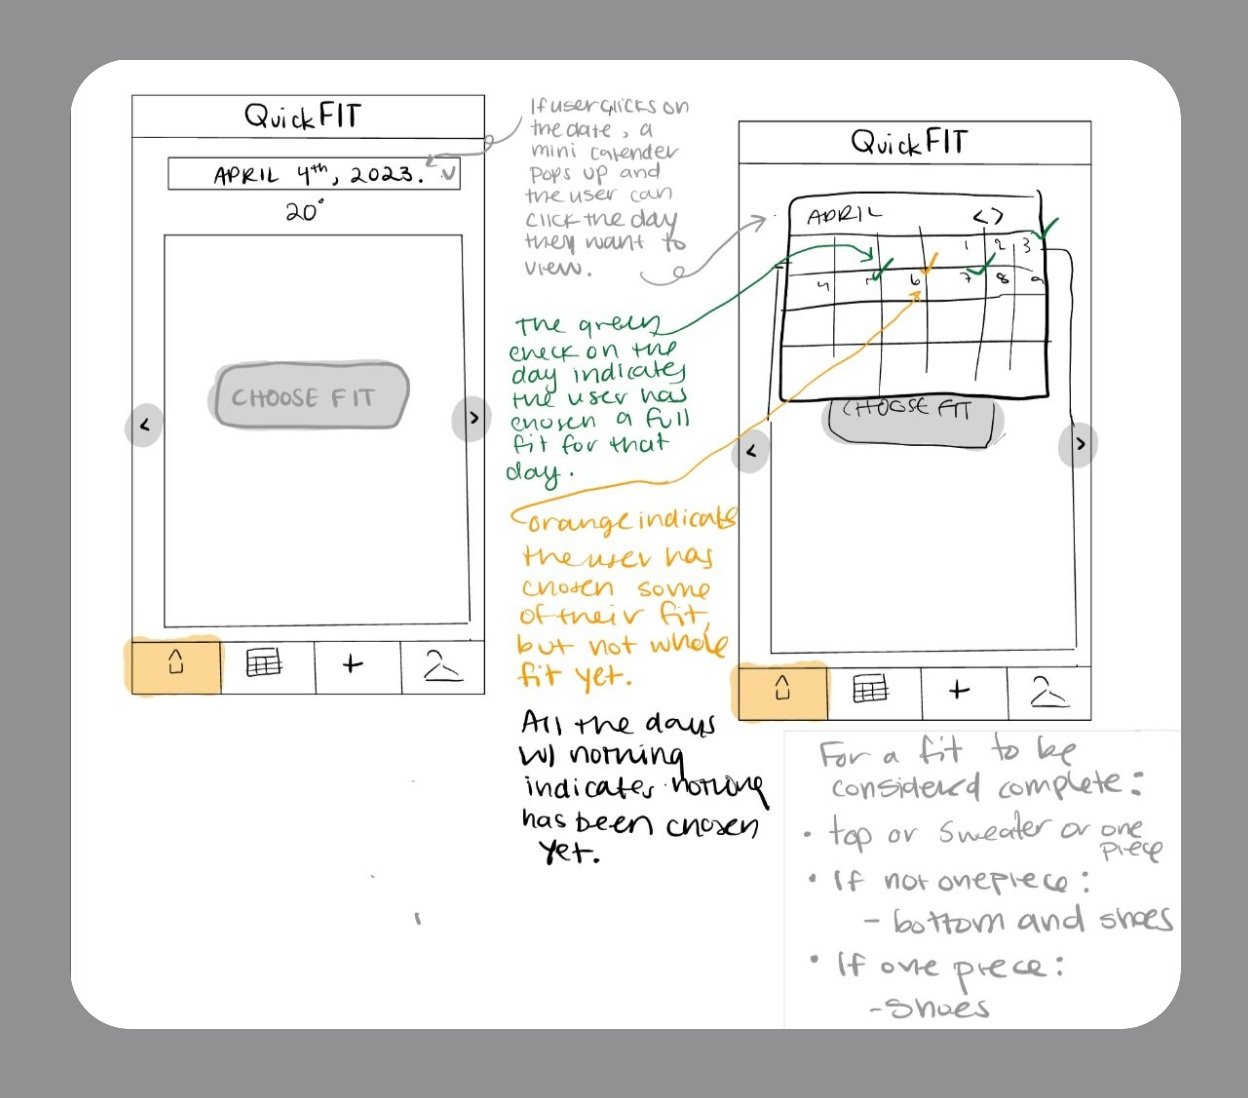 QuickFIT
APRIL 4th, 2023.
20°
CHOOSE FIT
<
>
+
If user clicks on
the date, a
mini calender
pops up and
the user can
click the day
they want to
view.
The green
check on the
day indicates
the user has
chosen a full
fit for that
day.
orange indicats
the user has
chosen some
of their fit,
but not whole
fit yet.
All the days
w/ nothing
indicates nothing
has been chosen
yet.
QuickFIT
APRIL <>
1 2 3
4 5 6 7 8 9
CHOOSE FIT
<
>
+
For a fit to be
considered complete:
• top or sweater or one
piece
• If not onepiece:
- bottom and shoes
• If one piece:
- shoes